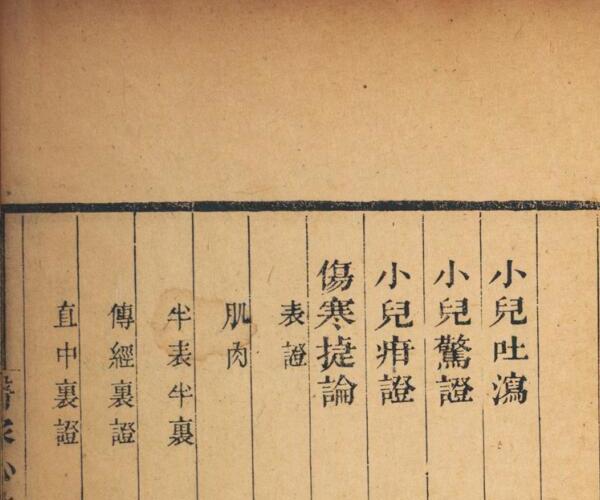 小兒吐瀉
小兒驚證
小兒疳證
傷寒捷論
表證
肌肉
半表半裏
傳經裏證
直中裏證